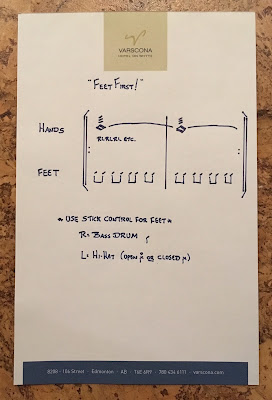 VARSCONA
HOTEL ON WHYTE
"FEET FIRST!"
HANDS
RLRLRL ETC.
FEET
* USE STICK CONTROL FOR FEET *
R= BASS DRUM
L= HI-HAT (OPEN OR CLOSED)
8208 - 106 Street - Edmonton - AB - T6E 6R9 - 780 434 6111 - varscona.com